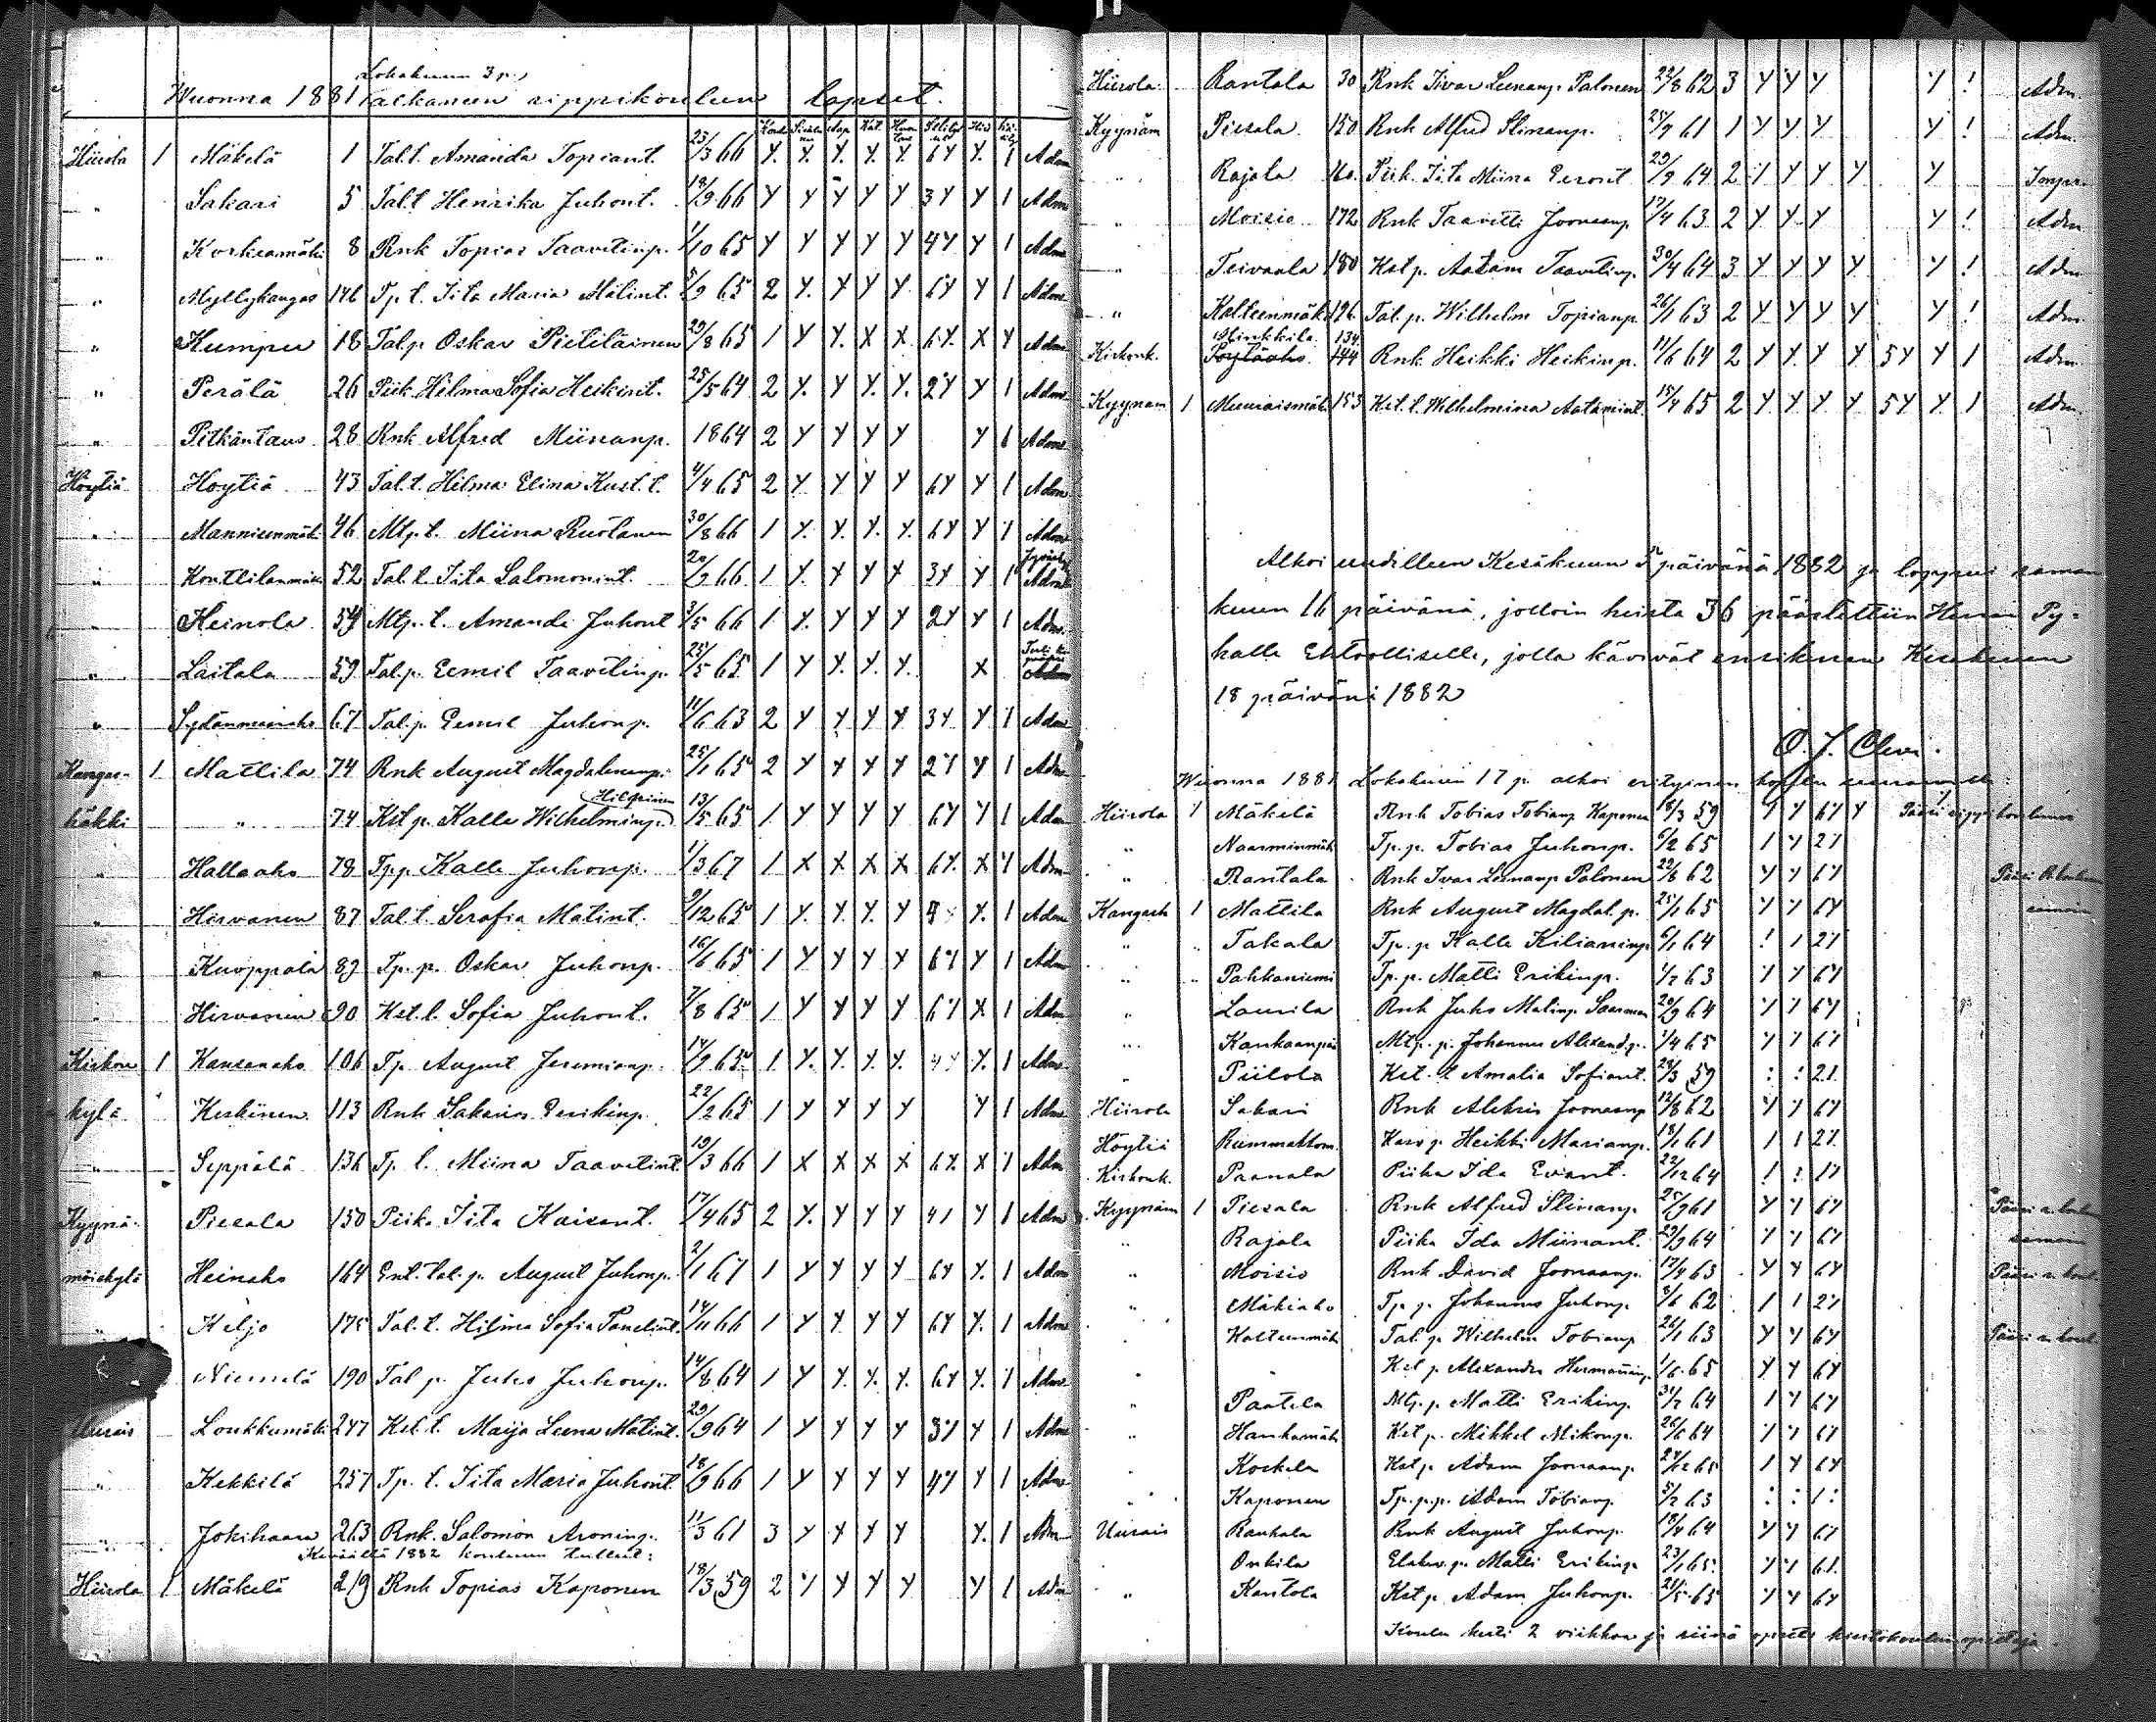 Lokakuun 3 p.
Wuonna 1881 alkaneen rippikoulun lapset.
Hiirola 1 Mäkelä 1 Tal.t. Amanda Topiant. 25/3 66 Y. Y. Y. Y. Y. 6Y Y. 1 Adm
" Sakari 5 Tal.t Henrika Juhont. 18/9 66 Y Y Y Y Y 3Y Y 1 Adm
" Korkeamäki 8 Rnk Topias Taavetinp. 1/10 65 Y Y Y Y Y 4Y Y 1 Adm
" Myllykangas 146 Tp. t. Iita Maria Matint. 5/9 65 2 Y. Y Y Y 6Y Y 1 Adm
" Kumpu 18 Tal.p Oskar Pietiläinen 29/8 65 1 Y Y. X X. 6Y. X Y Adm
" Perälä 26 Piik. Hilma Sofia Heikint. 25/5 64 2 Y. Y Y. Y. 2Y Y 1 Adm
" Pitkäntaus 28 Rnk Alfred Miinanp. 1864 2 Y Y Y Y Y 1 Adm
Höytiä Hoytiä 43 Tal.t. Hilma Elina Kust.t. 4/4 65 2 Y Y Y Y 6Y Y 1 Adm
" Mannisenmäki 46 Mtp.t. Miina Ruotanen 30/8 66 1 Y. Y. Y. Y. 6Y Y 1 Adm
" Konttilanmäki 52 Tal.t. Iita Salomonint. 20/7 66. 1 Y. Y Y Y 3Y Y 1 Adm
" Heinola 54 Mtp.t. Amanda Juhont 3/5 66 1 Y. Y Y Y 2Y Y 1 Adm.
" Laitala 59 Tal.p. Eemil Taavetinp. 25/5 65 1 Y Y. Y. Y. X Adm
" Sydänmaanaho 67 Tal.p. Eemil Juhonp. 11/6 63 2 Y Y. Y Y 3Y Y 1 Adm
Kangas- 1 Mattila 74 Rnk August Magdalenanp. 25/1 65 2 Y Y Y Y 2Y Y 1 Adm
häkki " 74 Kst p. Kalle Wilhelminp. 13/5 65 1 Y Y Y Y 6Y Y 1 Adm
" Hallaaho 78 Tp.p Kalle Juhonp. 1/3 67 1 X X X X 6Y. X 1 Adm
" Hirvanen 87 Tal.t. Serafia Matint. 9/12 65 1 Y. Y. Y. Y Y. 1 Adm
" Kuoppala 89 Tp. p. Oskar Juhonp. 16/6 65 1 Y Y Y Y 6Y Y 1 Adm
" Hirvanen 90 Kst.t. Sofia Juhont. 7/8 65 1 Y Y Y Y 6Y X 1 Adm
Kirkon 1 Kansanaho 106 Tp. August Jeremianp. 14/9 65 1 Y. Y. Y. Y. 4Y Y. 1 Adm
kylä Keskinen. 113 Rnk Sakarias Erikinp. 22/2 65 1 Y Y Y Y Y 1 Adm
" Seppälä 136 Tp. t. Miina Taavetint. 19/3 66 1 X X X X 6Y. X 1 Adm
Kyynä- Piesala 150 Piika Iita Kaisant. 17/4 65 2 Y. Y Y Y 4Y Y 1 Adm
möiskylä Heinaho 164 Ent.tal.p. August Juhonp. 2/1 67 1 Y Y Y Y 6Y Y. 1 Adm
" Keljo 175 Tal.t. Hilma Sofia Paulint. 14/11 66 1 Y Y Y Y 6Y Y. 1 Adm
Niemelä 190 Tal p. Juho Juhonp. 14/8 64 1 Y Y. Y. Y. 6Y Y. 1 Adm
Uurais Loukkumäki 247 Kst.t. Maija Leena Matint. 29/9 64 1 Y Y Y Y 3Y Y 1 Adm
" Kekkilä 257 Tp. t. Iita Maria Juhont. 18/9 66 1 Y Y Y Y 4Y Y 1 Adm
" Jokihaara 263 Rnk. Salomon Aroninp. 11/3 61 3 Y Y Y Y Y. 1 Adm
Keväällä 1882 kouluun tulleet:
Hiirola 1 Mäkelä 219 Rnk Topias Kaponen 18/3 59 2 Y Y Y Y Y 1 Adm
Hiirola. Rantala 30 Rnk Iivar Leenanp. Palonen 22/8 62 3 Y Y Y Y ! Adm.
Kyynäm Piesala. 150 Rnk Alfred Stinanp. 25/9 61 1 Y Y Y Y ! Adm.
" Rajala 160. Piik. Iita Miina Eeront 29/9 64 2 Y Y Y Y Y
" Moisio 172 Rnk Taavetti Joonaanp 17/4 63 2 Y Y Y Y ! Adm
" Teivaala 180 Kst p. Aatam Taavetinp. 30/4 64 3 Y Y Y Y Y ! Adm
" Kalteenmäki 196 Tal. p. Wilhelm Topianp. 26/1 63 2 Y Y Y Y Y ! Adm.
Minkkilä. 134.
Kirkonk. Pöyläaho. 144 Rnk. Heikki Heikinp. 11/6 64 2 Y Y Y Y 5Y Y 1 Adm
Kyynäm 1 Muuraismäki 153 Kst. t. Wilhelmina Aatamint. 15/4 65 2 Y Y Y Y 5Y Y 1 Adm.
Alkoi uudelleen Kesäkuun 5 päivänä 1882 ja loppui saman
kuun 16 päivänä, jolloin heistä 36 päästettiin Herran Py-
hälle Ehtoolliselle, jolla kävivät ensikerran Kesäkuun
18 päivänä 1882
O. J. Cleve.
Wuonna 1881 Lokakuun 17 p. alkoi erityinen koulu seuraaville:
Hiirola 1 Mäkelä Rnk Tobias Tobianp Kaponen 18/3 59 Y Y 6Y Y Pääsi rippikouluun
" Naarminmäki Tp. p. Tobias Juhonp. 6/2 65 1 Y 2Y
" Rantala Rnk Ivar Leenanp Palonen 22/8 62 Y Y 6Y Pääsi R.kouluun
Kangash 1 Mattila Rnk August Magdal. p. 25/1 65 Y Y 6Y samoin
" Takala Tp. p Kalle Kilianinp 6/1 64 ! 1 2Y
" Pahkaniemi Tp. p. Matti Erikinp. 1/2 63 Y Y 6Y
" Laurila Rnk Juho Matinp. Saarinen 20/9 64 Y Y 6Y
" Kankaanpää Mtp. p. Johannes Alexand.p. 1/4 65 Y Y 6Y
" Piilola Kst. t Amalia Sofiant. 29/3 59 : : 2.1.
Hiirola Sakari Rnk Aleksis Joonaanp 12/8 62 Y Y 6Y
Höytiä Rummakkom. Kasv p. Heikki Marianp. 18/1 61 1 1 2Y.
Kirkonk. Paanala Piika Ida Evant. 22/12 64 ! : 1Y
Kyynäm 1 Piesala Rnk Alfred Stinanp. 25/9 61 Y Y 6Y Pääsi r. koul
" Rajala Piika Ida Miinant. 29/9 64 Y Y 6Y samoin
" Moisio Rnk David Joonaanp. 17/4 63 Y Y 6Y Pääsi r. koul.
" Mäkiaho Tp. p. Johannes Juhonp. 8/6 62 1 1 2Y
Kalteenmäki Tal. p. Wilhelm Tobianp 26/1 63 Y Y 6Y Pääsi r. koul
" Kst p. Alexander Hermanninp. 1/6 65 Y Y 6Y
" Paatela Mtp. p. Matti Erikinp. 31/7 64 1 Y 6Y
" Hankamäki Kst p. Mikkel Mikonp. 26/6 64 Y Y 6Y
" Koskela Kst p. Adam Joonaanp. 24/12 65 1 Y 6Y
" Kaponen Tp.p.p. Adam Tobianp. 5/2 63 : : 1 :
Uurais Rankala Rnk August Juhonp. 18/4 64 Y Y 6Y
Onkila Elatusp. Matti Erikinp. 23/1 65. Y Y 6.1.
" Kantola Kst p. Adam Juhonp. 21/5 65 Y Y 6Y
Koulu kesti 2 viikkoa ja siinä opetti kiertokoulunopettaja.